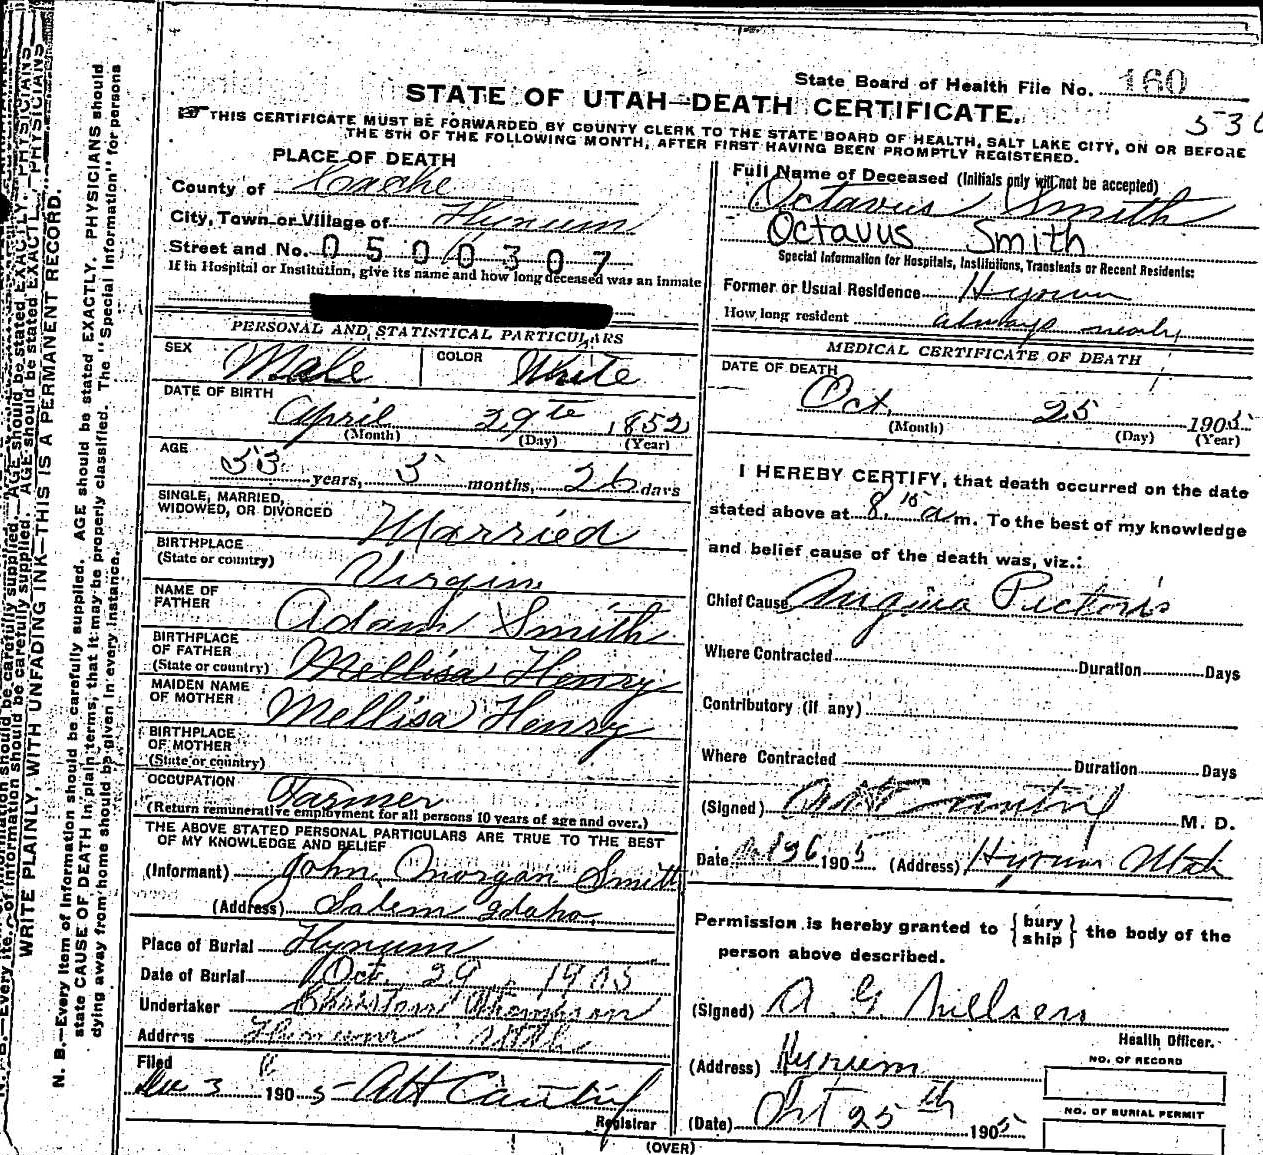 State Board of Health File No. 160
STATE OF UTAH—DEATH CERTIFICATE.
530
☞ THIS CERTIFICATE MUST BE FORWARDED BY COUNTY CLERK TO THE STATE BOARD OF HEALTH, SALT LAKE CITY, ON OR BEFORE
THE 5TH OF THE FOLLOWING MONTH, AFTER FIRST HAVING BEEN PROMPTLY REGISTERED.
PLACE OF DEATH
County of Cache
City, Town or Village of Hyrum
Street and No. 0500307
If in Hospital or Institution, give its name and how long deceased was an inmate
PERSONAL AND STATISTICAL PARTICULARS
SEX Male
COLOR White
DATE OF BIRTH
April 29th 1852
(Month) (Day) (Year)
AGE
53 years, 5 months, 26 days
SINGLE, MARRIED,
WIDOWED, OR DIVORCED Married
BIRTHPLACE
(State or country) Virgin
NAME OF
FATHER Adam Smith
BIRTHPLACE
OF FATHER
(State or country) Mellisa Henry
MAIDEN NAME
OF MOTHER Mellisa Henry
BIRTHPLACE
OF MOTHER
(State or country)
OCCUPATION Farmer
(Return remunerative employment for all persons 10 years of age and over.)
THE ABOVE STATED PERSONAL PARTICULARS ARE TRUE TO THE BEST
OF MY KNOWLEDGE AND BELIEF
(Informant) John Morgan Smith
(Address) Salem Idaho
Place of Burial Hyrum
Date of Burial Oct. 29, 1905
Undertaker
Address Hyrum Utah
Filed
Dec 3 1905 AH Cantril
Registrar
Full Name of Deceased (Initials only will not be accepted)
Octavus Smith
Octavus Smith
Special Information for Hospitals, Institutions, Transients or Recent Residents:
Former or Usual Residence Hyrum
How long resident always nearly
MEDICAL CERTIFICATE OF DEATH
DATE OF DEATH
Oct. 25 1905
(Month) (Day) (Year)
I HEREBY CERTIFY, that death occurred on the date
stated above at 8.15 a m. To the best of my knowledge
and belief cause of the death was, viz.:
Chief Cause Angina Pectoris
Where Contracted Duration Days
Contributory (if any)
Where Contracted Duration Days
(Signed) AH Cantril M. D.
Date 1905 (Address) Hyrum Utah
Permission is hereby granted to { bury ship } the body of the
person above described.
(Signed) A G Nillsen
Health Officer.
(Address) Hyrum
(Date) Oct 25th 1905
NO. OF RECORD
NO. OF BURIAL PERMIT
(OVER)
WRITE PLAINLY, WITH UNFADING INK—THIS IS A PERMANENT RECORD.
N. B.—Every item of information should be carefully supplied. AGE should be stated EXACTLY. PHYSICIANS should
state CAUSE OF DEATH in plain terms, that it may be properly classified. The "Special Information" for persons
dying away from home should be given in every instance.